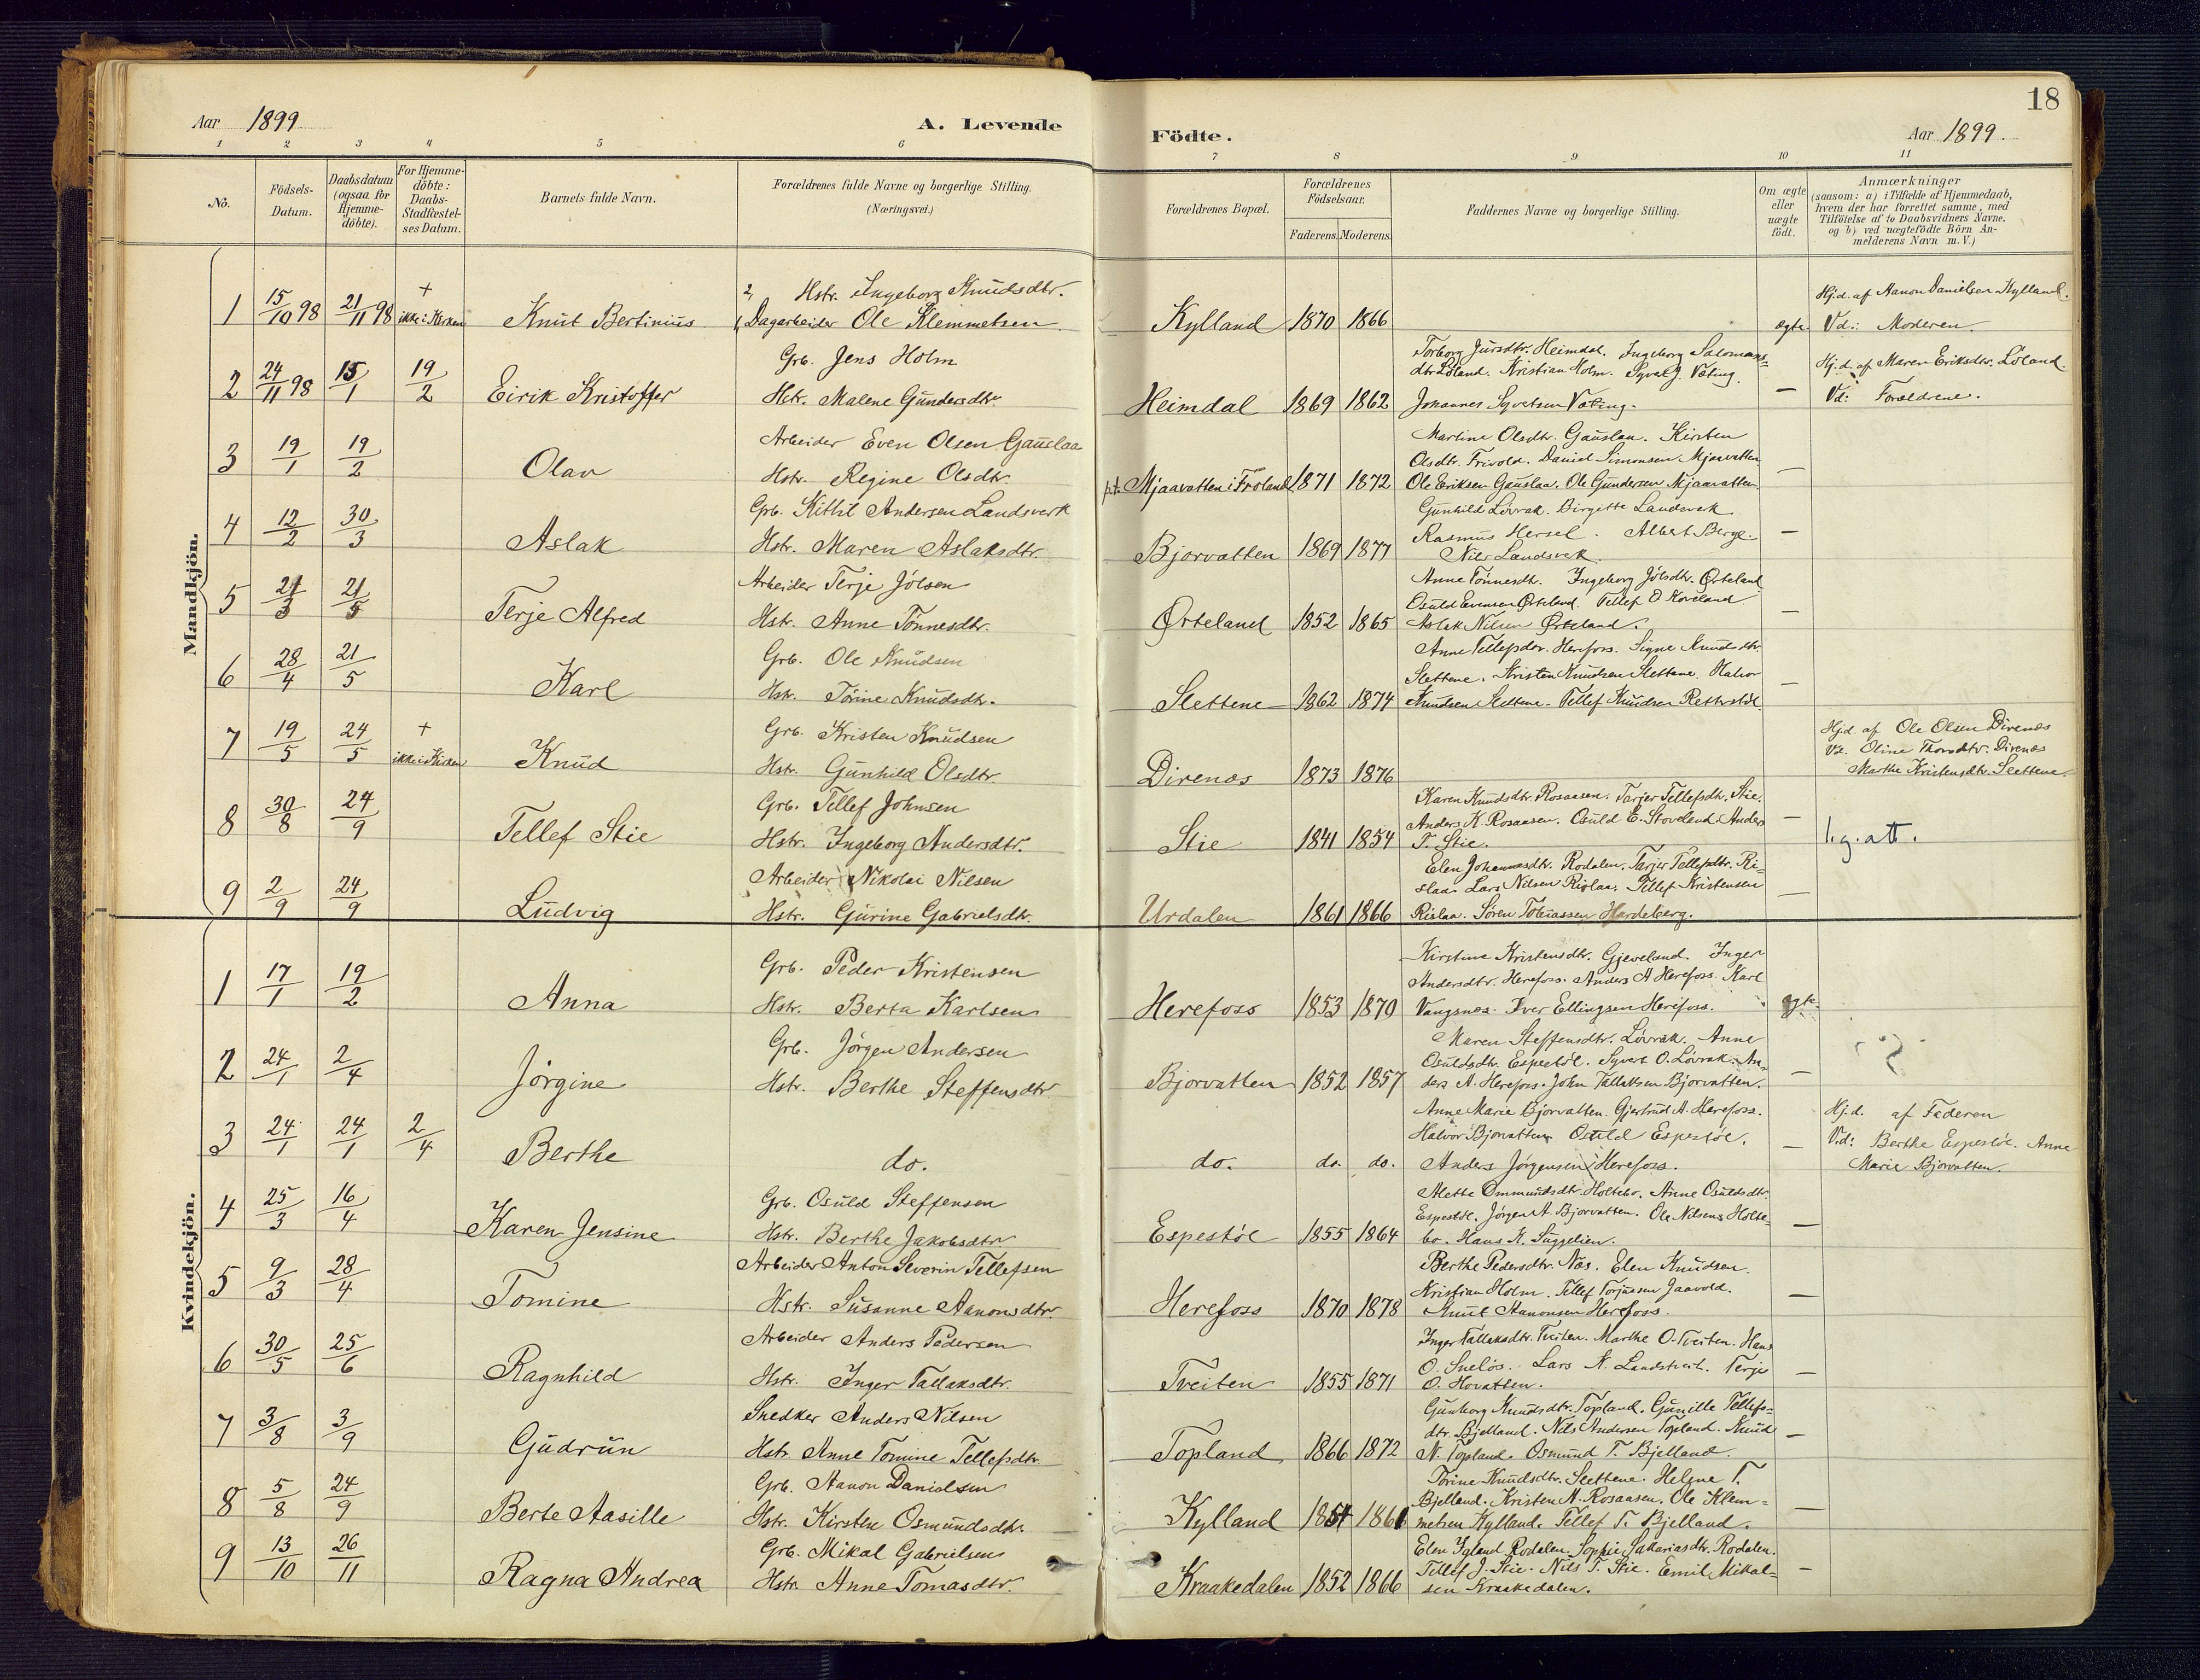 18
Aar 1899
A. Levende
Födte.
Aar 1899.
1 2 3 4 5 6 7 8 9 10 11
No.
Födsels-Datum.
Daabsdatum (ogsaa for Hjemme-döbte).
For Hjemme-döbte: Daabs-Stadfæstel-ses Datum.
Barnets fulde Navn.
Forældrenes fulde Navne og borgerlige Stilling.
(Næringsvei.)
Forældrenes Bopæl.
Forældrenes Födselsaar.
Faderens. Moderens.
Faddernes Navne og borgerlige Stilling.
Om ægte eller uægte födt.
Anmærkninger
(saasom: a) i Tilfælde af Hjemmedaab,
hvem der har forrettet samme, med
Tilföielse af to Daabsvidners Navne.
og b) ved uægtefödte Börn An-
melderens Navn m. V.)
Mandkjön.
1 15/10 98 21/11 98 + ikke i Kirken Knut Bertinius
2, Hstr. Ingeborg Knudsdtr.
1, Dagarbeider Ole Klemmetsen
Kylland 1870 1866 ægte.
Hj.d. af Aanon Danielsen Kylland.
Vd.: Moderen.
2 24/11 98 15/1 19/2 Eirik Kristoffer
Grb. Jens Holm
Hstr. Malene Gundersdtr.
Heimdal 1869 1862
Torborg Jursdtr. Heimdal. Ingeborg Salomons-
dtr Löland. Kristian Holm. Syver J. Væting.
Johannes Syvertsen Væting. —
Hj.d. af Maren Eriksdtr. Löland.
Vd: Forældrene.
3 19/1 19/2 Olav
Arbeider Even Olsen Gauslaa
Hstr. Regine Olsdtr.
p.t. Mjaavatten i Froland 1871 1872
Martine Olsdtr. Gauslaa. Kirsten
Olsdtr. Frivold. Daniel Simonsen Mjaavatten
Ole Eriksen Gauslaa. Ole Gundersen Mjaavatten. —
4 12/2 30/3 Aslak
Grb. Kittil Andersen Landsverk
Hstr. Maren Aslaksdtr.
Bjorvatten 1869 1877
Gunhild Lövrak. Birgitte Landsverk
Rasmus Hersel. Albert Berge.
Nils Landsverk —
5 21/3 21/5 Terje Alfred
Arbeider Terje Jölsen
Hstr. Anne Tönnesdtr.
Örteland 1852 1865
Anne Tönnesdtr. Ingeborg Jölsdtr. Örteland
Osuld Evensen Örteland. Tellef O Koveland
Aslak Nilsen Örteland. —
6 28/4 21/5 Karl
Grb. Ole Knudsen
Hstr. Törine Knudsdtr.
Slettene 1862 1874
Anne Tellefsdtr. Herefoss. Signe Knudsdtr.
Slettene. Kristen Knudsen Slettene. Halvor
Knudsen Slettene. Tellef Knudsen Retterstöl. —
7 19/5 24/5 + ikke i Kirken Knud
Grb. Kristen Knudsen
Hstr. Gunhild Olsdtr.
Direnæs 1873 1876
Hj.d. af Ole Olsen Direnæs
Vd. Oline Thorsdtr. Direnæs
Marthe Kristensdtr. Slettene.
8 30/8 24/9 Tellef Stie
Grb. Tellef Johnsen
Hstr. Ingeborg Andersdtr.
Stie 1841 1854
Karen Knudsdtr. Rosaasen. Tarjer Tellefsdtr. Stie.
Anders K. Rosaasen. Osuld E. Stoveland. Anders
T. Stie. —
l.g. att.
9 2/9 24/9 Ludvig
Arbeider Nikolai Nilsen
Hstr. Gurine Gabrielsdtr.
Urdalen 1861 1866
Elen Johannesdtr. Rodalen. Tarjer Tellefsdtr. Ri-
slaa. Lars Nilsen Rislaa. Tellef Kristensen
Rislaa. Sören Tobiassen Hardeberg. —
Kvindekjön.
1 17/1 19/2 Anna
Grb. Peder Kristensen
Hstr. Berta Karlsen
Herefoss 1853 1870
Kirstine Kristensdtr. Gjeveland. Inger
Andersdtr. Herefoss. Anders A Herefoss. Karl
Vangsnes. Iver Ellingsen Herefoss. ægte.
2 24/1 2/4 Jörgine
Grb. Jörgen Andersen
Hstr. Berthe Steffensdtr.
Bjorvatten 1852 1857
Maren Steffensdtr. Lövrak. Anne
Osuldsdtr. Espestöl. Syvert O. Lövrak. An-
ders A. Herefoss. John Tallaksen Bjorvatten. —
3 24/1 24/1 2/4 Berthe
do.
do. do. do.
Anne Marie Bjorvatten. Gjertrud A. Herefoss.
Halvor Bjorvatten. Osuld Espestöl.
Anders Jörgensen Herefoss. —
Hj.d. af Faderen
V.d: Berthe Espestöl. Anne
Marie Bjorvatten.
4 25/3 16/4 Karen Jensine
Grb. Osuld Steffensen
Hstr. Berthe Jakobsdtr
Espestöl 1855 1864
Mette Ommundsdtr. Holtebo. Anne Osuldsdtr.
Espestöl. Jörgen A. Bjorvatten. Ole Nilsen Holte-
bo. Hans K. Suggelien. —
5 9/3 28/4 Tomine
Arbeider Anton Severin Tellefsen
Hstr. Susanne Aanonsdtr.
Herefoss 1870 1878
Berthe Pedersdtr. Næs. Elen Knudsen.
Kristian Holm. Tellef Torjussen Jaavold.
Knut Aanonsen Herefoss. —
6 30/5 25/6 Ragnhild
Arbeider Anders Pedersen
Hstr. Inger Tallaksdtr.
Tveiten 1855 1871
Inger Tallaksdtr. Tveiten. Marthe O. Tveiten. Hans
O. Snelös. Lars N. Landstveit. Terje
O. Hovatten. —
7 3/8 3/9 Gudrun
Snedker Anders Nilsen
Hstr. Anne Tomine Tellefsdtr.
Topland 1866 1872
Gunborg Knudsdtr. Topland. Gunille Tellefs-
dtr. Bjelland. Nils Andersen Topland. Knud
N. Topland. Osmund T. Bjelland. —
8 5/8 24/9 Berte Aasille
Grb. Aanon Danielsen
Hstr. Kirsten Osmundsdtr.
Kylland 1854 1861
Törine Knudsdtr. Slettene. Helene T.
Bjelland. Kristen A. Rosaasen. Ole Klem-
metsen Kylland. Tellef T. Bjelland. —
9 13/10 26/11 Ragna Andrea
Grb. Mikal Gabrielsen
Hstr. Anne Tomasdtr.
Kraakedalen 1852 1866
Elen Igland Rodalen. Sophie Sakariasdtr. Rodalen.
Tellef J. Stie. Nils T. Stie. Emil Mikal-
sen Kraakedalen. —